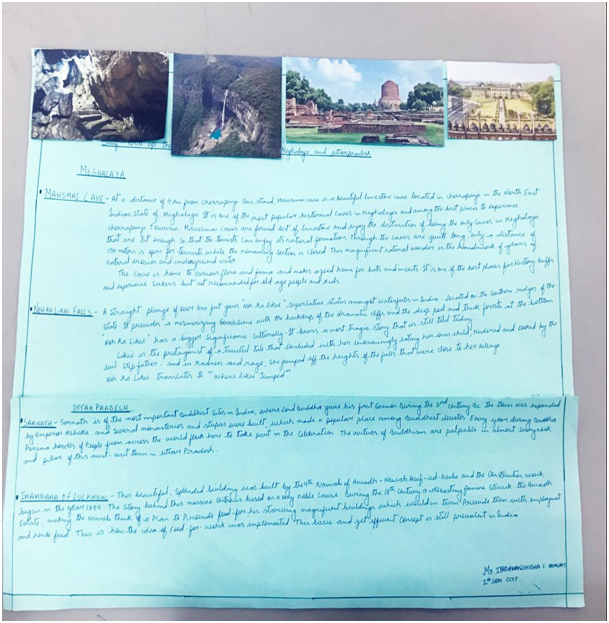 Meghalaya and utterpradesh
MEGHALAYA
MAWSMAI CAVE - At a distance of 4 km from cherrapunji Bus stand Mawsmai cave is a beautiful limestone cave located in cherrapunji in the North East
Indian state of Meghalaya. It is one of the most popular historical caves in Meghalaya and among the best places to experience
cherrapunji Tourism. Mawsmai caves are formed out of limestone and enjoy the distinction of being the only caves in Meghalaya
that are lit enough so that the tourists can enjoy its natural formation through the caves are quite long only a distance of
150 meters is open for tourists while the remaining section is closed. This magnificent natural wonder is the handiwork of years of
natural erosion and underground water.
The cave is home to various flora and fauna and makes a good home for bats and insects. It is one of the best places for History buffs
and experience seekers but not recommended for old age people and kids
NOHKALIKAI FALLS - A straight plunge of over gives "Noh ka likai" superlative status amongst waterfalls in India. Situated on the southern ridges of the
state It presents a mesmerizing with the backdrop of the dramatic cliffs and the deep pool and thick forests at the bottom
"Noh ka likai" has a bigger significance culturally. It bears a most tragic story that is still told today.
Likai is the protagonist of a twisted tale that concluded with her unknowingly eating her own child, murdered and cooked by the
evil step father - and in madness and rage, she jumped off the heights of the falls that were close to her village
Noh ka Likai translates to "where likai jumped"
UTTAR PRADESH
SARNATH - Sarnath is of the most important Buddhist sites in India, where Lord Buddha gave his first sermon During the 3rd century BC the town was expanded
by Emperor Ashoka and several monasteries and stupas were built, which made a popular place among Buddhist devotees Every year during Buddha
Purnima hordes of People from across the world flock here to take part in the Celebration. The virtues of Buddhism are palpable in almost every nook
and pillar of this must-visit town in uttar Pradesh.
IMAMBARA OF LUCKNOW - This beautiful, splendid building was built by the 4th Nawab of Awadh - Nawab Asaf-ud-Daula and the Construction work
began in the year 1784. The story behind this massive is based on a very noble Cause. During the 18th Century a devastating famine struck the Awadh
Estate, making the nawab think of a Plan to Provide food for his starving magnificent buildings which would in turn Provide them with employment
and hence food. This is how the idea of Food for work was implemented This basic and yet efficient concept is still prevalent in India
Ms.
1st SEM